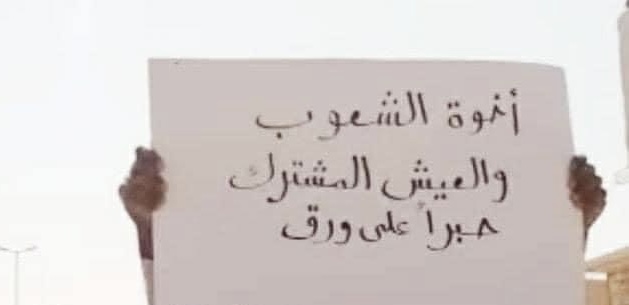 أخوة الشعوب
والعيش المشترك
حبراً على ورق